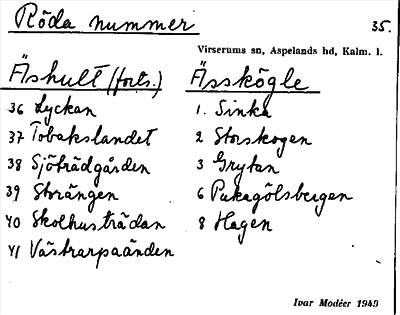 Röda nummer 35.
Virserums sn, Aspelands hd, Kalm. l.
Äshult (forts.)
36 Lyckan
37 Tobakslandet
38 Sjöträdgården
39 Storängen
40 Skolhusträdan
41 Västrarpaänden
Ässkögle
1. Sinka
2 Storskogen
3 Grytan
6 Pukagölsbergen
8 Hagen
Ivar Modéer 1949